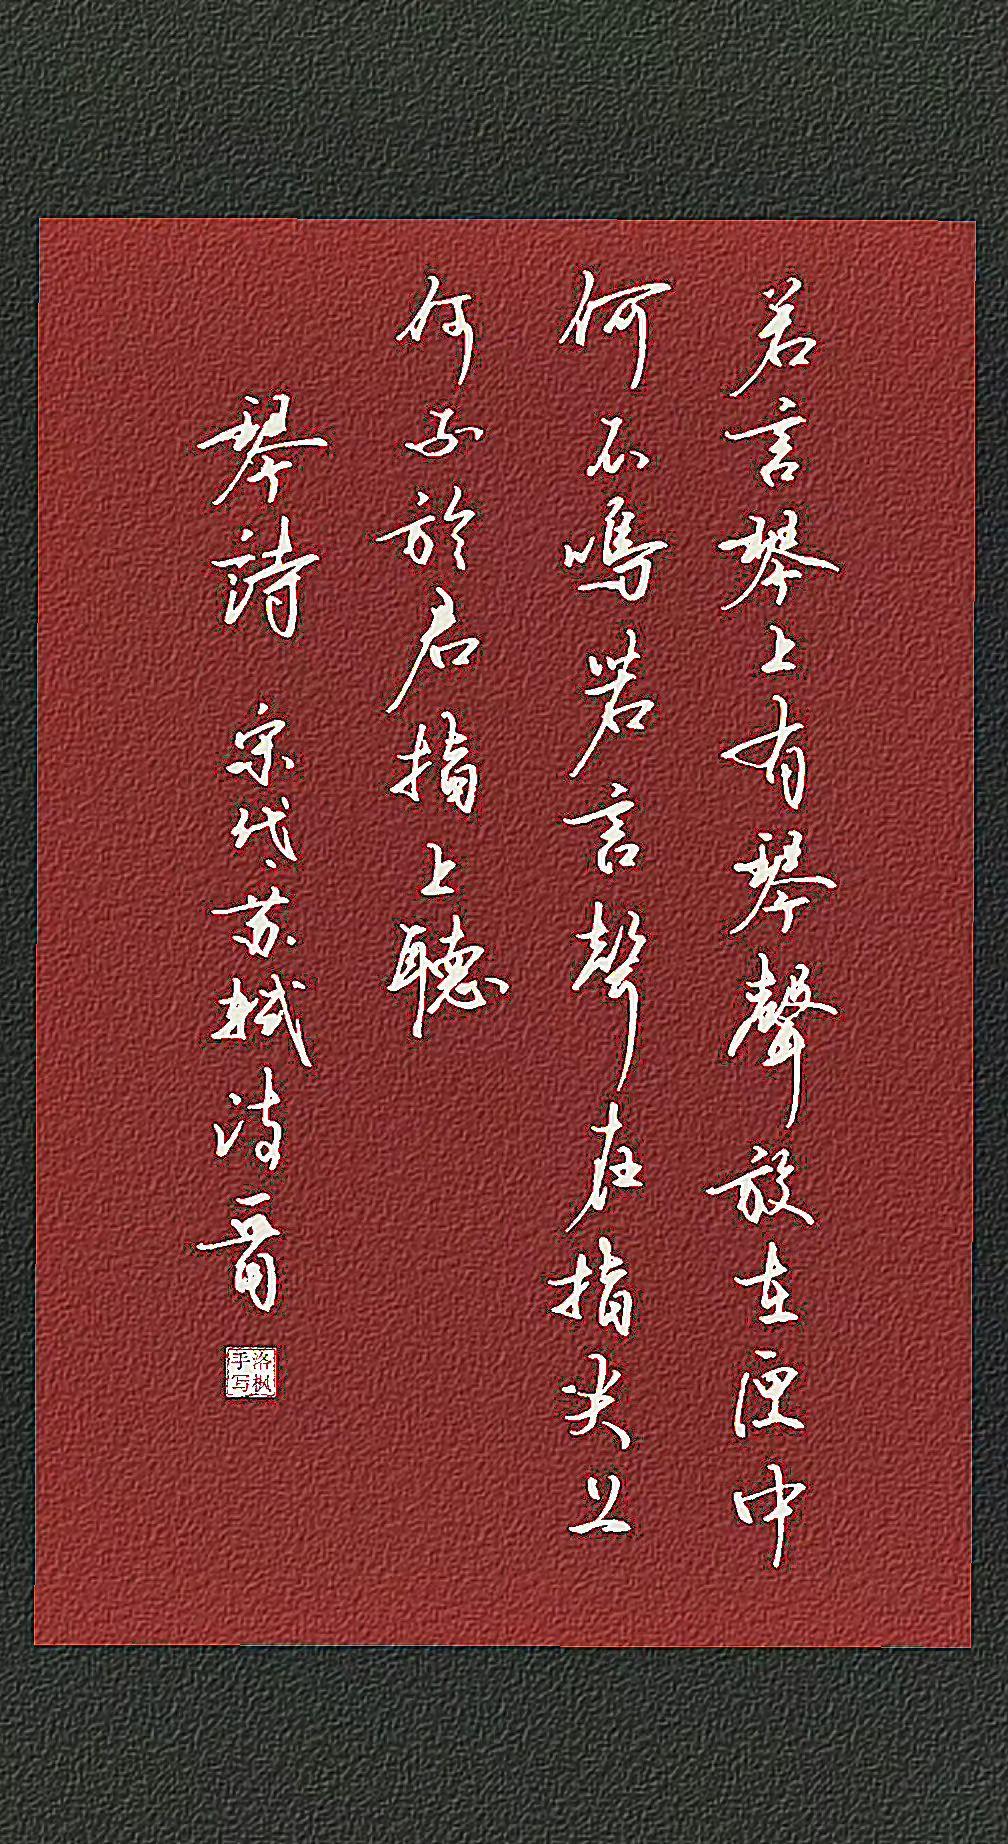 若言琴上有琴聲放在匣中
何不鳴若言聲在指尖上
何不於君指上聽
琴詩 宋代·苏轼诗一首
洛枫手写